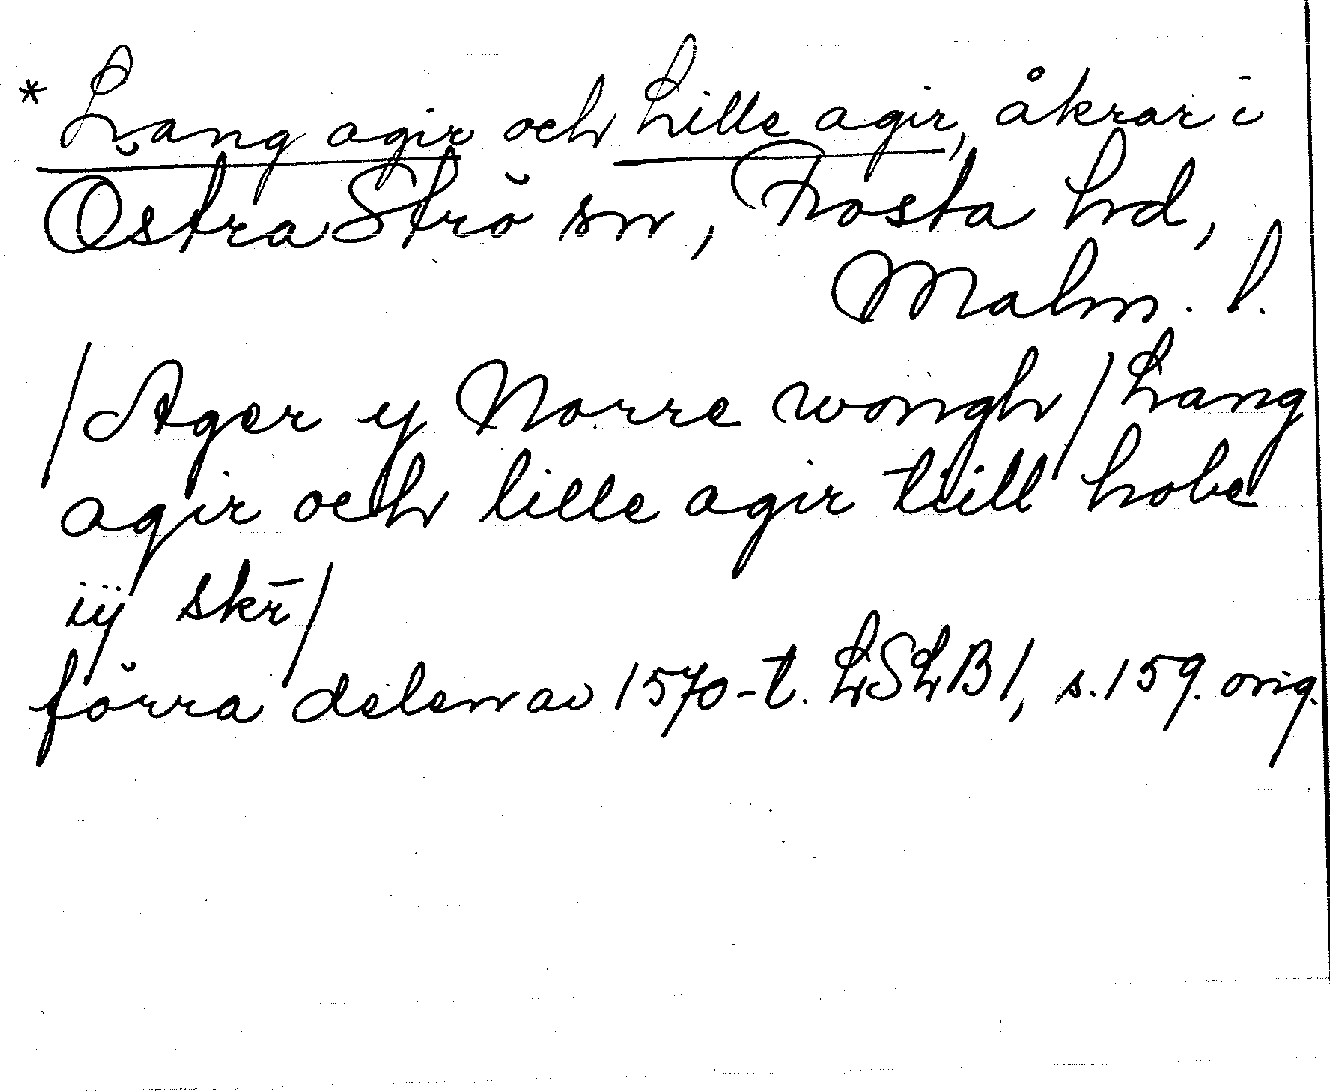 * Lang agir och Lille agir, åkrar i
Östra Strö sn, Frosta hd,
Malm. l.
/Ager y Norre wongh/Lang
agir och lille agir till hobe
iÿ skr̄/
förra delen av 1570-t. LSLB1, s.159. orig.